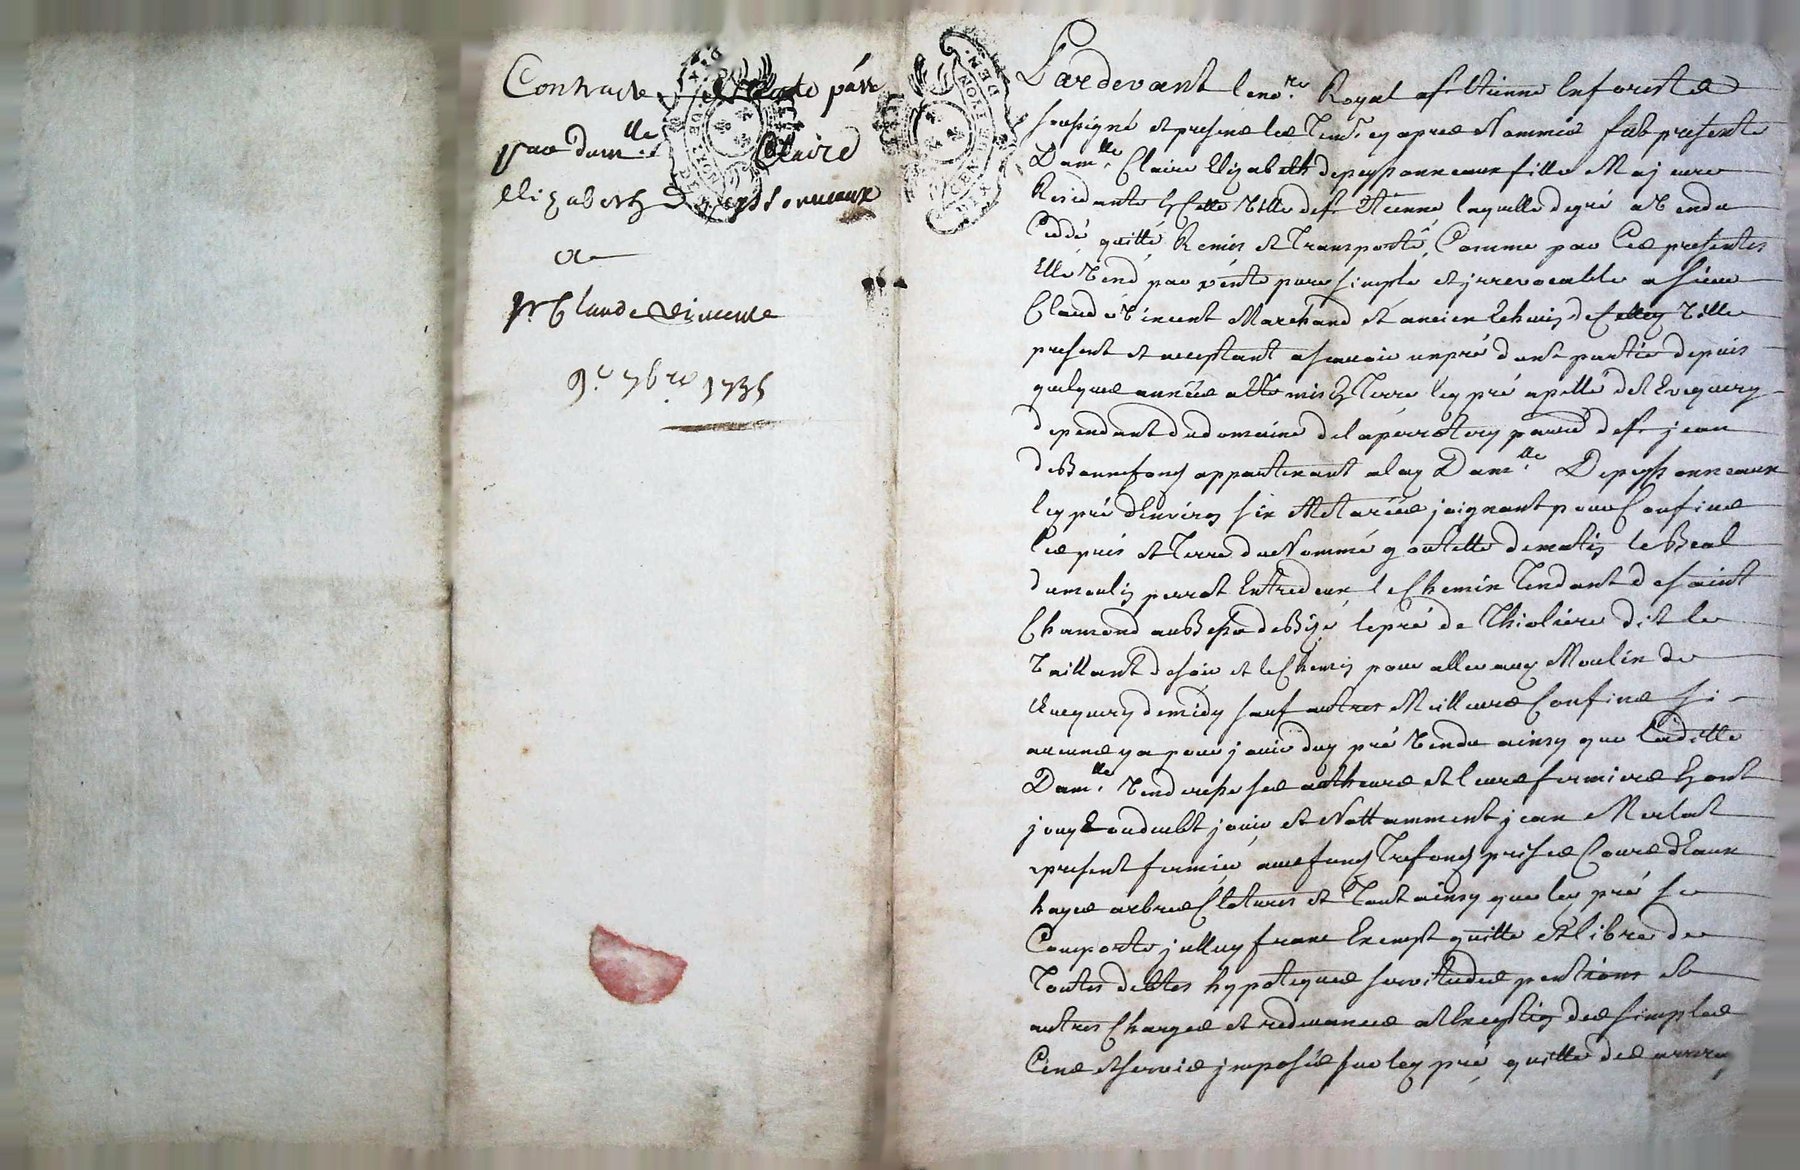 Contracte de Vente passé
par dam.lle Claire
Elizabeth Depeyssonneaux
a
Sr Claude Vincent
9.e 7bre 1735
Pardevant le no.re Royal a St Etienne en forest
soussigné et presens les tem. cy apres Nommés fut presente
Dam.lle Claire Elizabeth depeyssonneaux fille Majeure
Residante en cette Ville de St Etienne laquelle de gré a Vendu
Ceddé quitté Remis et Transporté Comme par Ces presentes
Elle Vend par vente pure simple et jrrevocable a sieur
Claude Vincent Marchand et ancien Echevin de Cette Ville
present et acceptant a scavoir un pré dont partie depuis
quelques années a ette mis en Terre led pré apellé
dependant du domaine de la perrotiery parr. de St jean
de Bonnefond appartenant a lad Dam.lle Depeyssonneaux
led pré d'Environ six Metérées joignant pour Confins
les prés et Terre du Nommé goutelle de matin le Beal
du moulin perrot Entre deux le Chemin Tendant de saint
Chamond au de Bize le pré de Thioliere dit le
Vaillant de soir et le Chemin pour aller aux Moulin de
de midy sauf autres Meilleurs Confins si
aucuns y a pour jouir dud pré Vendu ainsy que Ladette
Dam.lle Vend ses autheurs et leurs fermiers En ont
jouy Et ou deubt jouir et Nottamment jean Merlat
present fermier avec fonds Trefonds prises Cours d'Eaux
hayes arbres Clotures et Tout ainsy que led pré se
Comporte jcelluy franc Exempt quitte et libre de
Toutes debtes hypoteques servitudes pentions et
autres Charges et redevances a l'exeption des simples
Cens et servis jmposés sur led pré quitte des arrer.